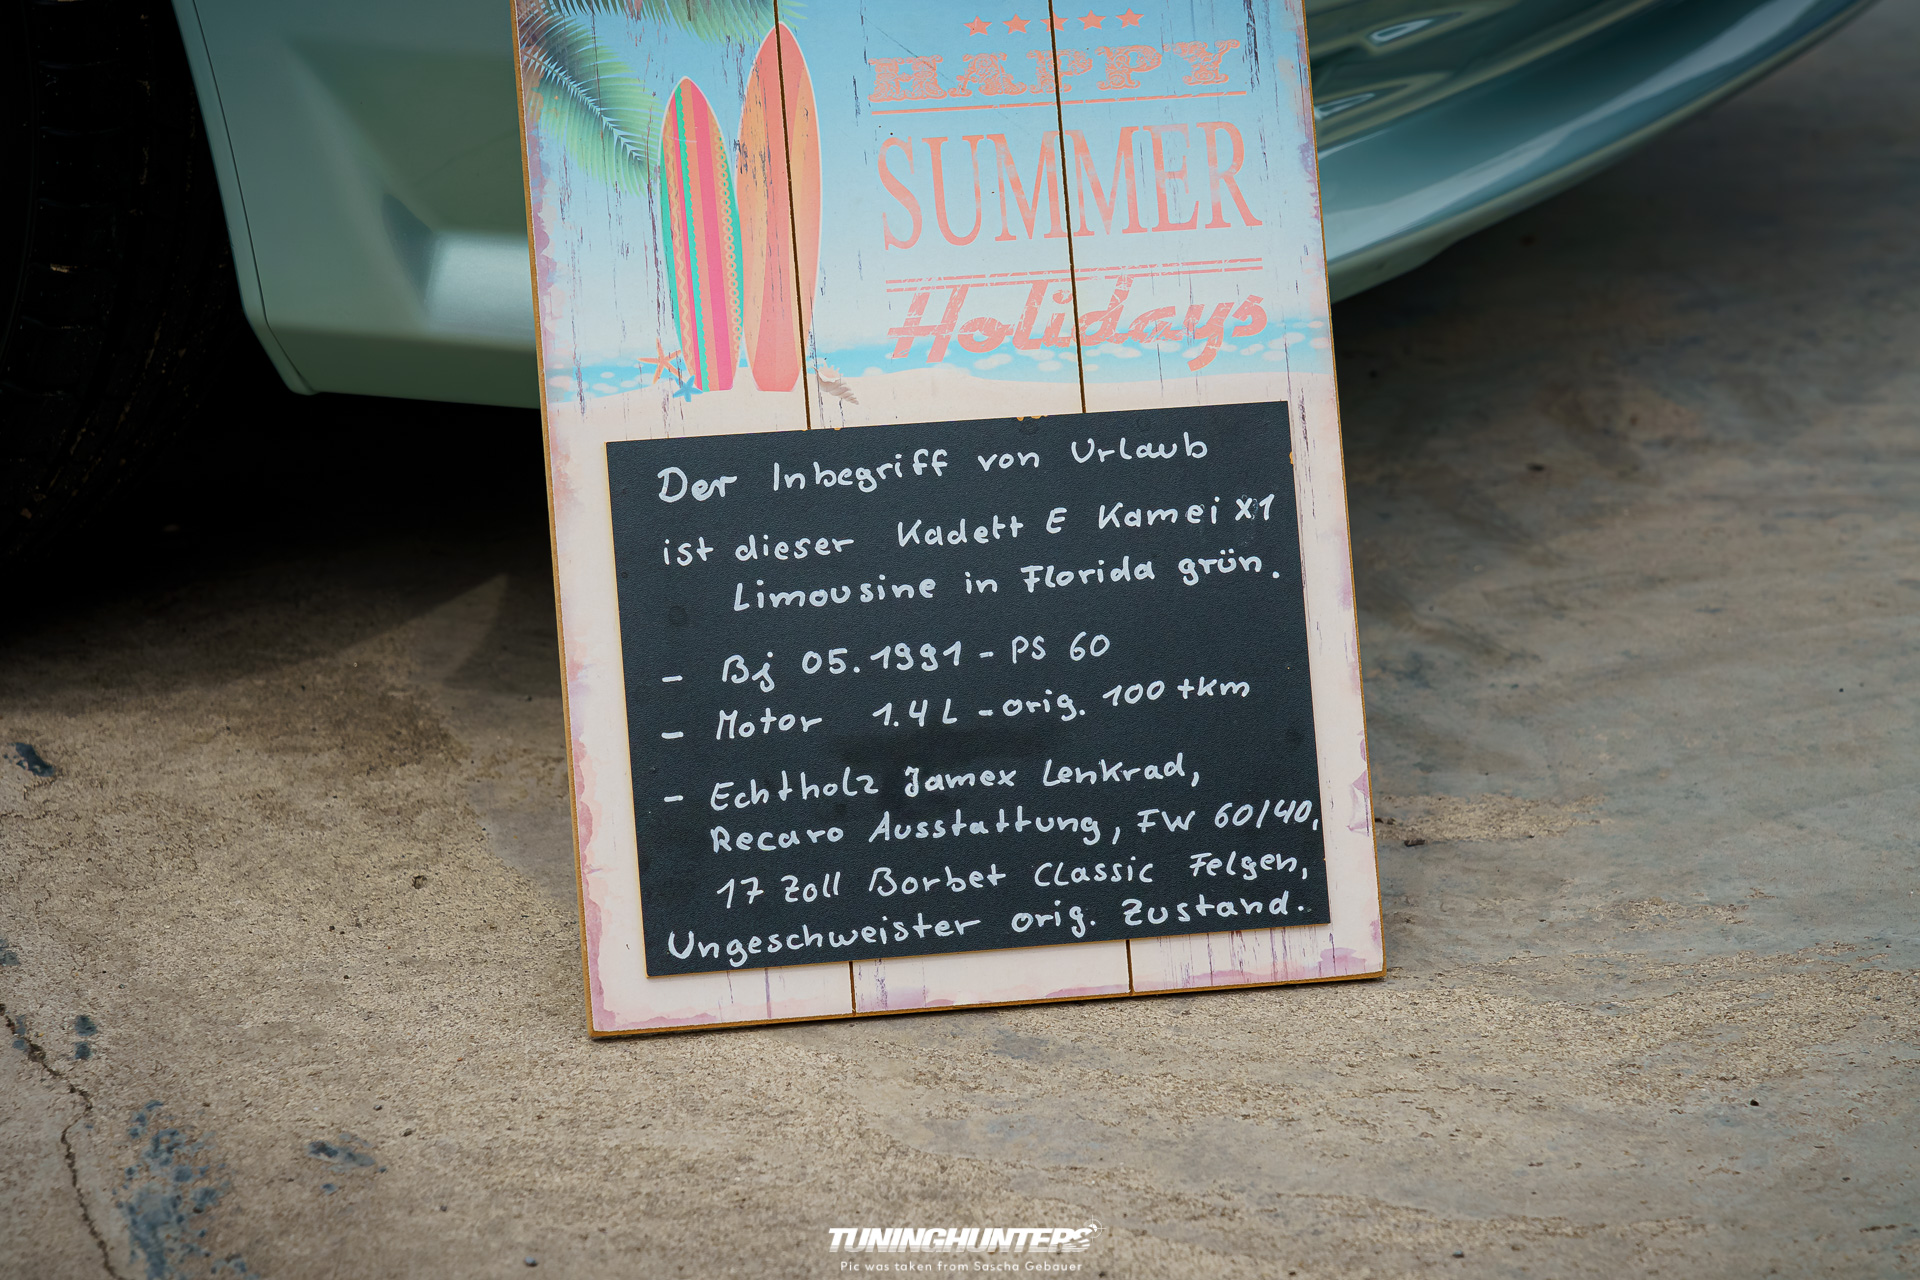 HAPPY
SUMMER
Holidays
Der Inbegriff von Urlaub
ist dieser Kadett E Kamei X1
Limousine in Florida grün.
- Bj 05.1991 - PS 60
- Motor 1.4 L - orig. 100 tkm
- Echtholz Jamex Lenkrad,
Recaro Ausstattung, FW 60/40,
17 Zoll Borbet Classic Felgen,
Ungeschweister orig. Zustand.
TUNINGHUNTERS
Pic was taken from Sascha Gebauer